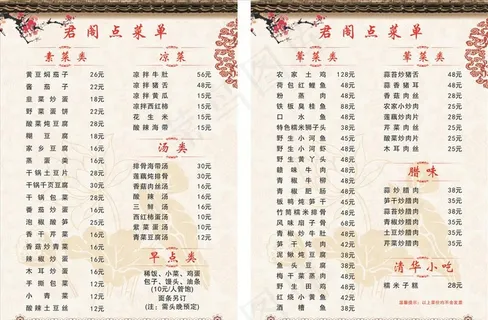 君阁点菜单
素菜类
黄豆焖茄子 26元
酱茄子 21元
韭菜炒蛋 18元
野菜蛋饼 22元
酸菜炖豆腐 28元
糊豆腐 18元
家乡豆腐 18元
蒸蛋羹 15元
干锅土豆片 28元
干锅千页豆腐 28元
干锅包菜 28元
番茄炒蛋 18元
泡椒酸笋 25元
香干芹菜 18元
香菇炒青菜 18元
辣味丝瓜 18元
木耳炒蛋 18元
手撕包菜 18元
小青菜 12元
酸辣土豆丝 12元
凉菜
凉拌牛肚 56元
凉拌猪舌 48元
凉拌黄瓜 15元
凉拌西红柿 15元
花生米 15元
酸辣海带 15元
汤类
排骨海带汤 30元
莲藕炖排骨 30元
香菇肉丝汤 30元
酸辣汤 15元
三鲜汤 15元
西红柿蛋汤 12元
紫菜蛋汤 12元
青菜豆腐汤 12元
早点类
稀饭、小菜、鸡蛋
包子、馒头、油条
(10元/人管饱)
面条另订
(注：需头晚预定)
君阁点菜单
荤菜类
农家土鸡 128元
荷包红鲤鱼 48元
粉蒸肉 48元
铁板臭桂鱼 68元
口水鱼 58元
特色糯米狮子头 38元
野生小河鱼 58元
野生小河虾 48元
野生黄丫头 58元
赣味牛肉 48元
青椒牛柳 48元
青椒肥肠 48元
板鸭炖笋干 48元
竹筒糯米排骨 48元
风味扇子骨 48元
青椒炒猪肚 48元
笋干炖肉 42元
泥鳅炖豆腐 38元
鱼头豆腐 38元
梅干菜蒸肉 38元
野生田鸡 38元
红烧小黄鱼 42元
酒糟鱼 38元
荤菜类
蒜苔炒猪舌 48元
蒜香猪耳 48元
香菇肉丝 28元
农家小炒肉 28元
莲藕炒肉片 28元
芹菜肉丝 28元
木耳肉丝 28元
腊味
蒜炒腊肉 38元
笋干炒腊肉 38元
青椒炒腊肉 38元
土豆炒腊肉 38元
芹菜炒腊肉 35元
清华小吃
糯米子糕 28元
温馨提示：以上菜价均不含发票